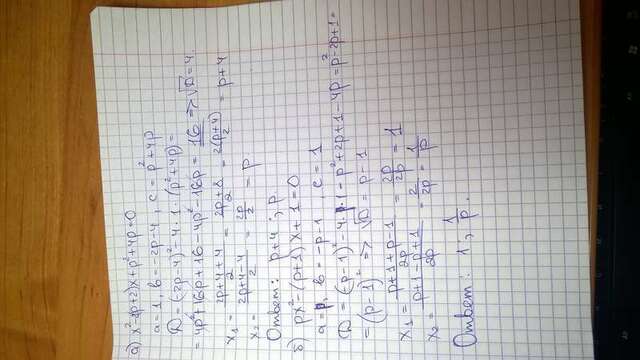 а) x²-2(p+2)x+p²+4p=0
a=1, в=-2p-4, c=p²+4p
D=(-2p-4)²-4·1·(p²+4p)=
=4p²+16p+16-4p²-16p=16 => √D=4.
x₁=(2p+4+4)/2=(2p+8)/2=2(p+4)/2=p+4
x₂=(2p+4-4)/2=2p/2=p
Ответ: p+4; p.
б) px²-(p+1)x+1=0
a=p, в=-p-1, c=1
D=(-p-1)²-4·p·1=p²+2p+1-4p=p²-2p+1=
=(p-1)² => √D=p-1
x₁=(p+1+p-1)/2p=2p/2p=1
x₂=(p+1-p+1)/2p=2/2p=1/p
Ответ: 1; 1/p.